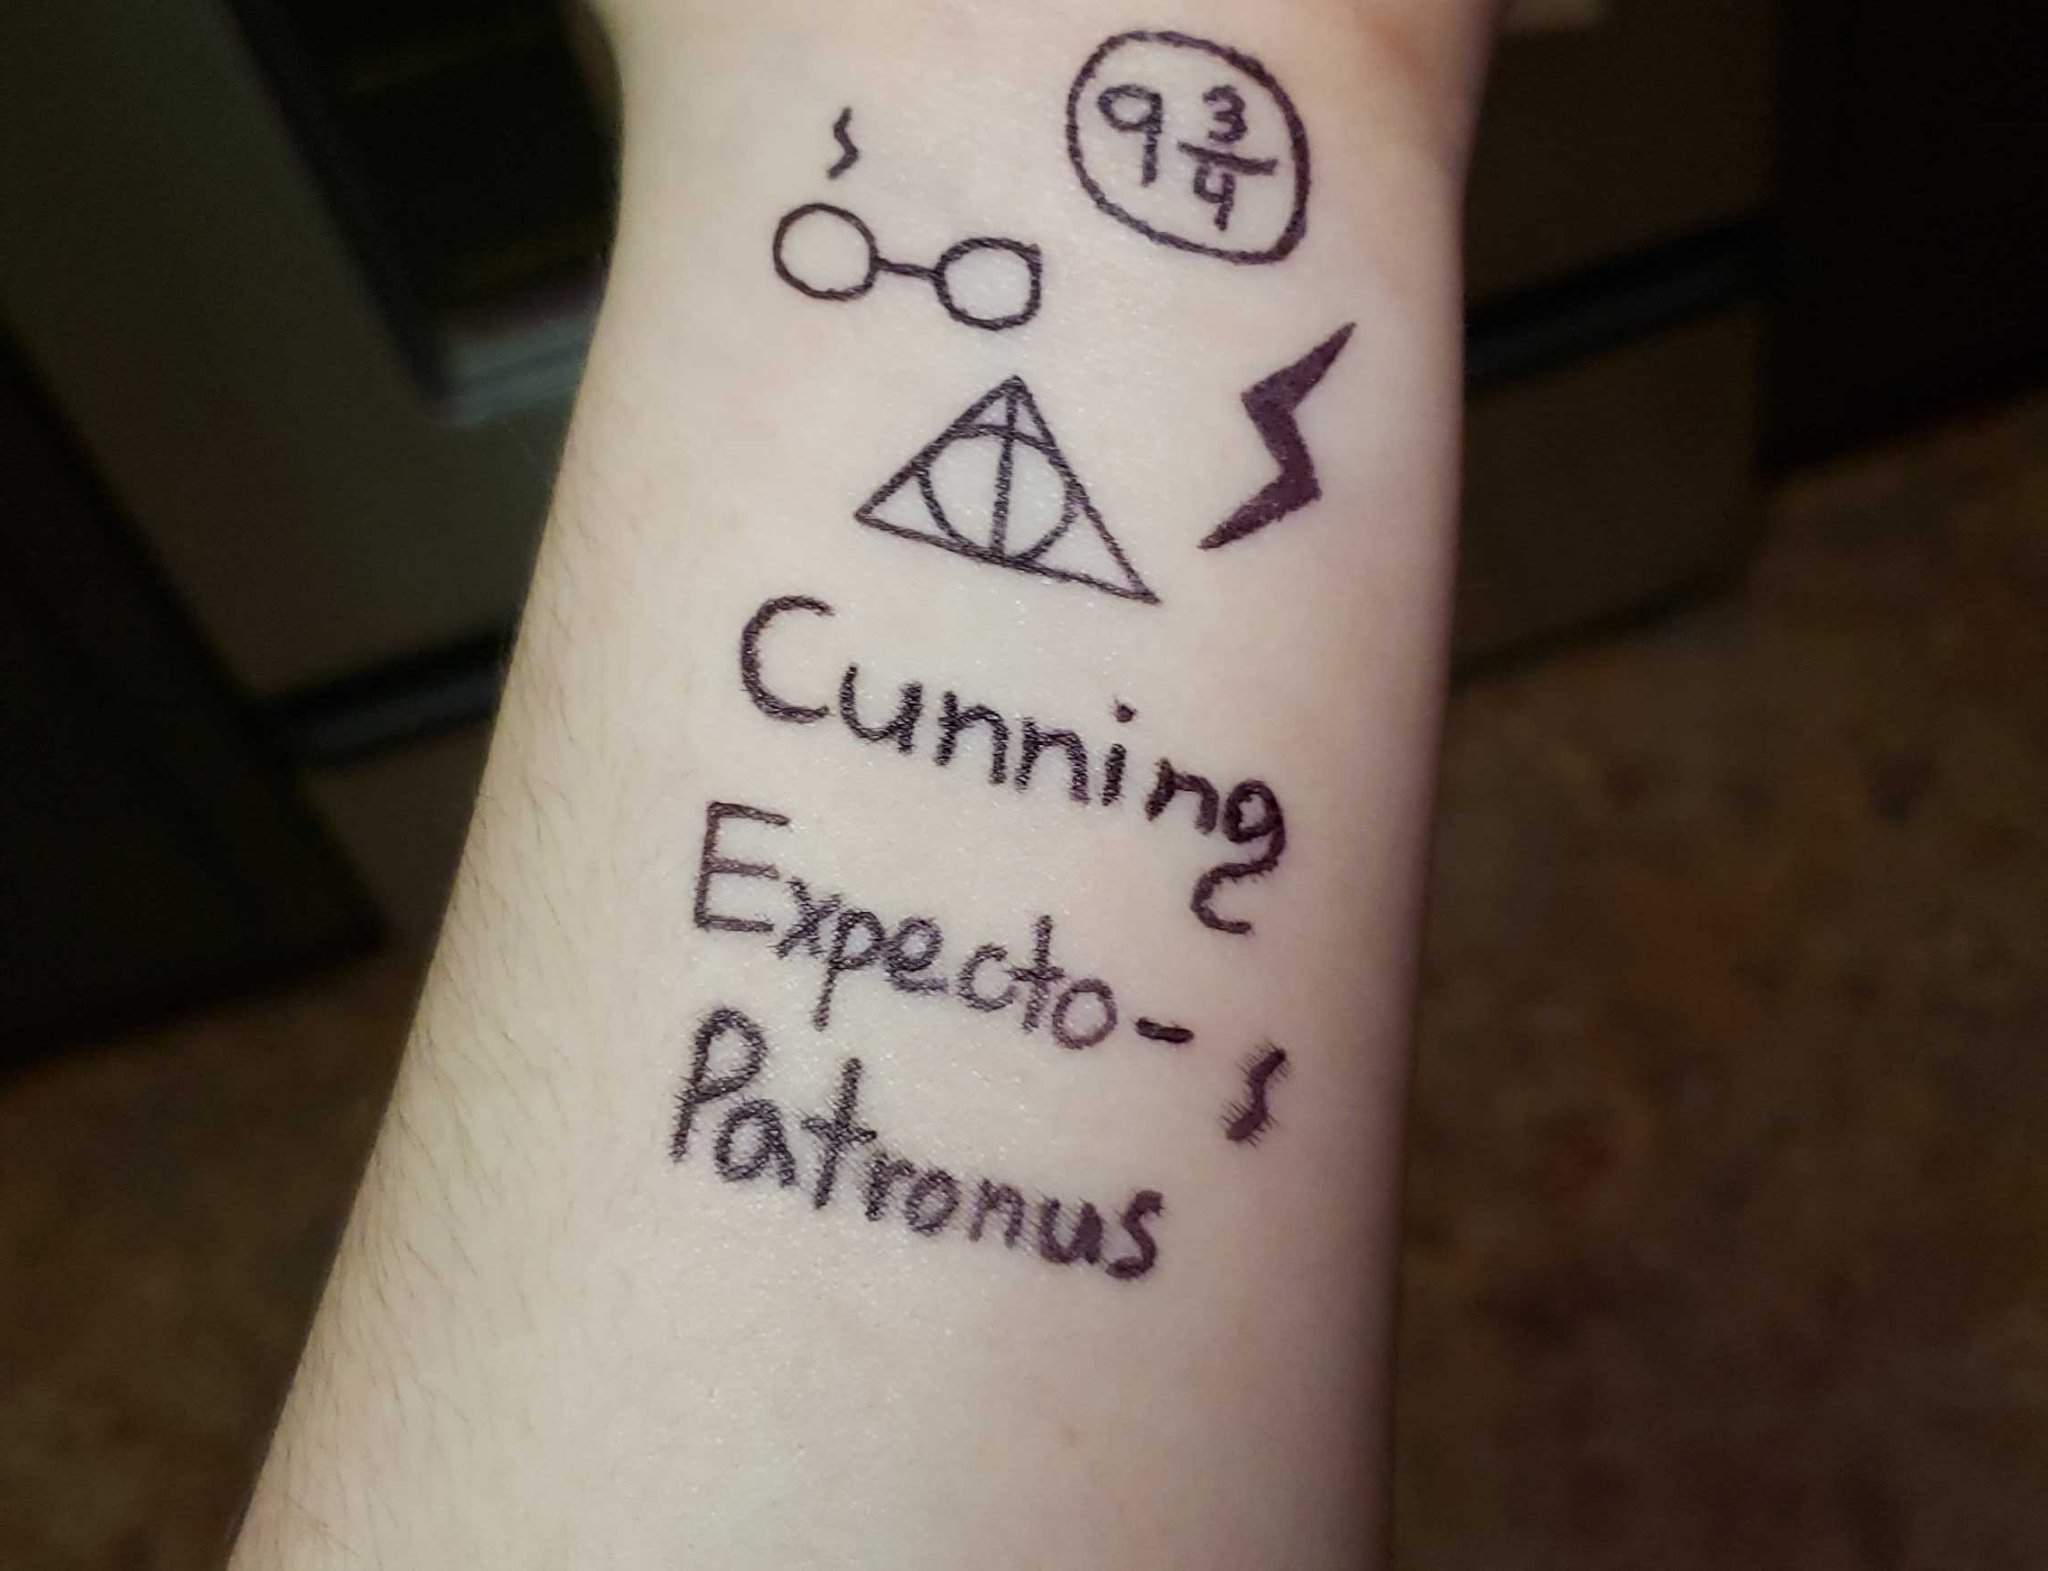 9 3/4
Cunning
Expecto-
Patronus